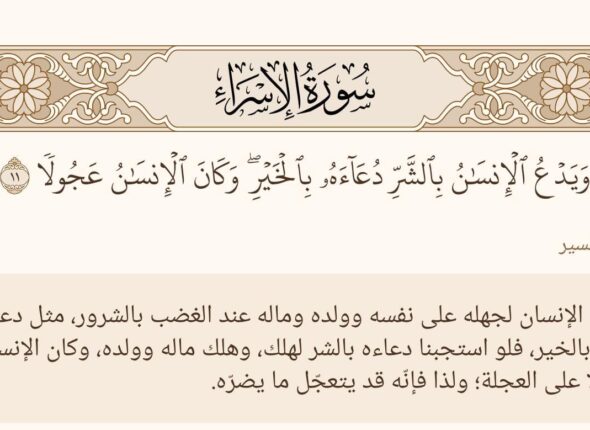 سُورَةُ الإِسْرَاءِ
وَيَدۡعُ ٱلۡإِنسَٰنُ بِٱلشَّرِّ دُعَآءَهُۥ بِٱلۡخَيۡرِۖ وَكَانَ ٱلۡإِنسَٰنُ عَجُولٗا ١١
الإنسان لجهله على نفسه وولده وماله عند الغضب بالشرور، مثل
بالخير، فلو استجبنا دعاءه بالشر لهلك، وهلك ماله وولده، وكان
على العجلة؛ ولذا فإنّه قد يتعجّل ما يضرّه.